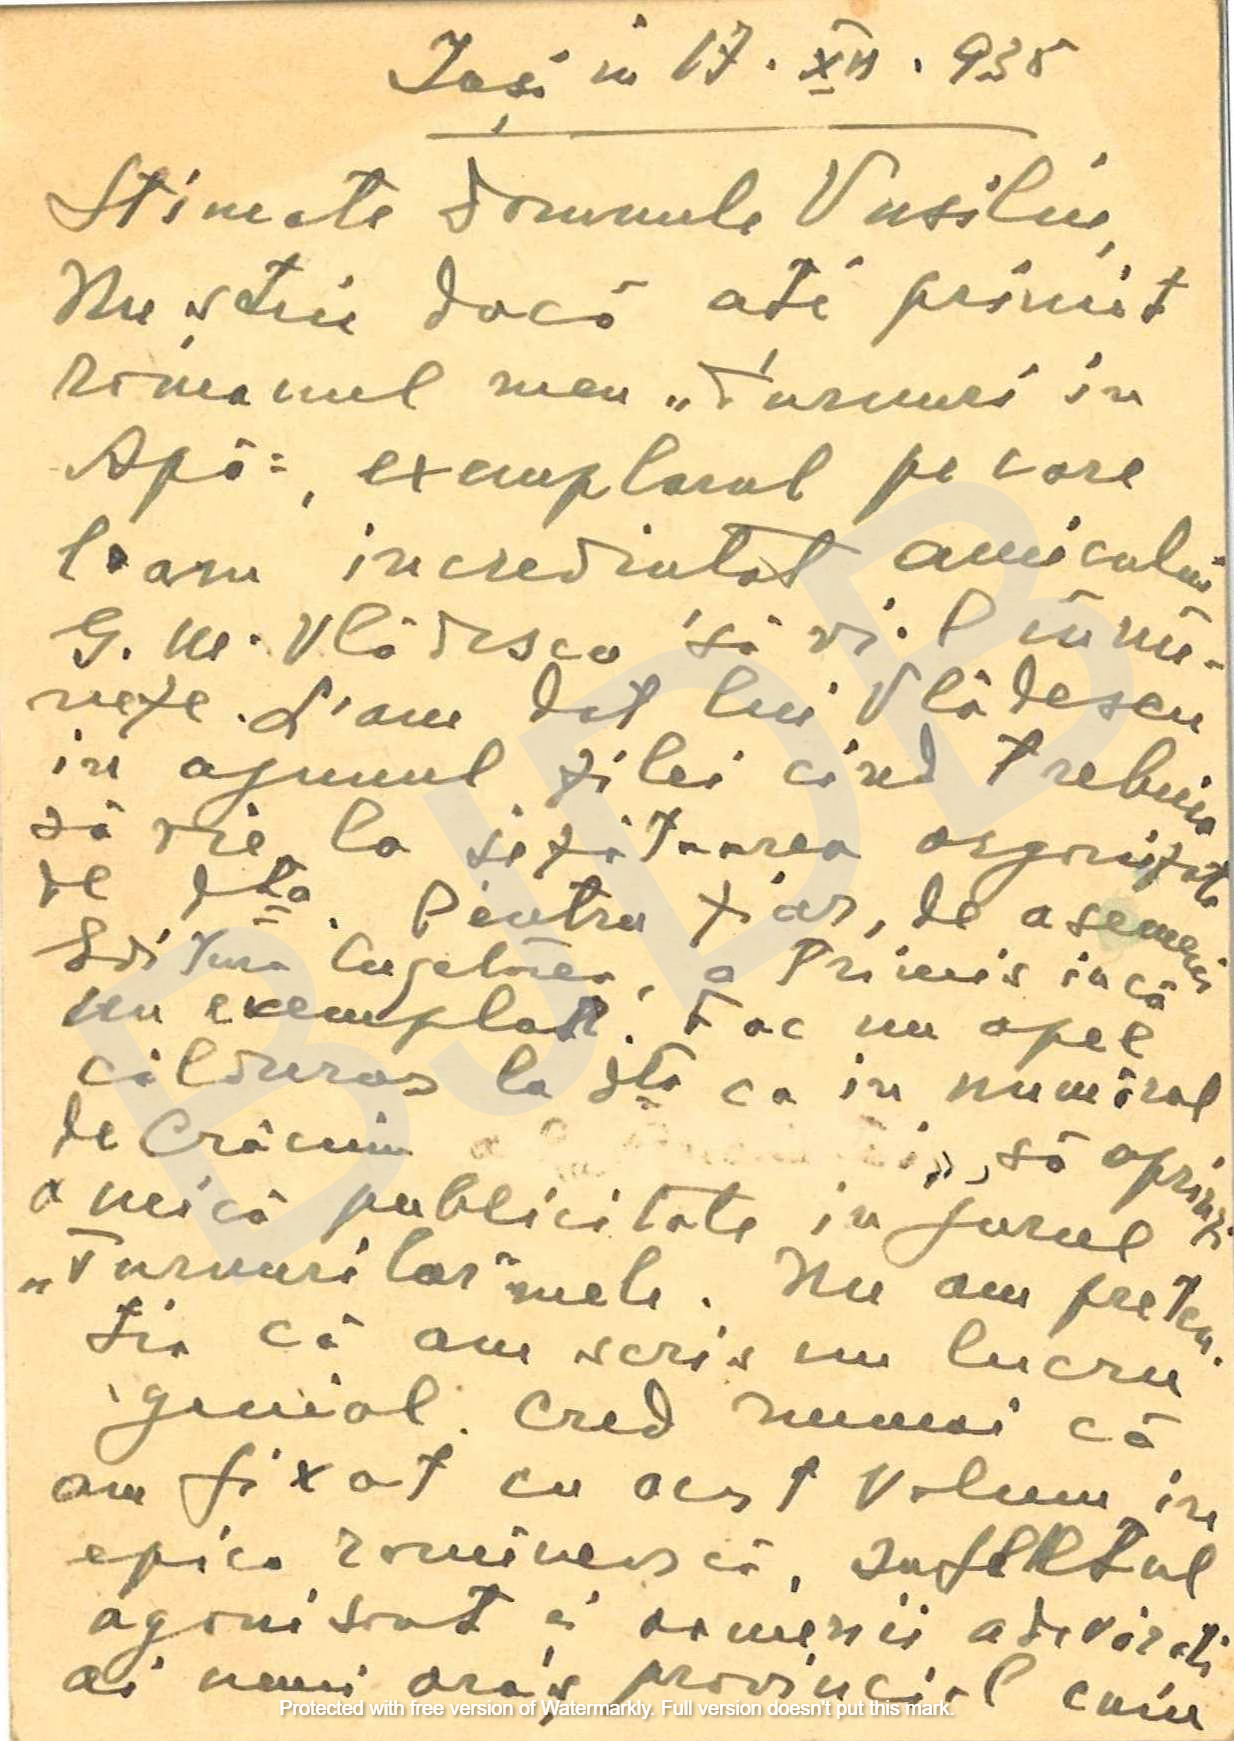 Iași in 17. XII. 935
Stimate domnule Vasiliu,
Nu știu dacă ați primit
romanul meu „Turnuri in
Apă", exemplarul pe care
l-am incredintat amicului
G. M. Vlădescu să vi-l inmî-
neze. L'am dat lui Vlădescu
in ajunul zilei cind trebuia
să vie la șezătoarea organizată
de dta. Pentru ziar, de asemeni
Editura Cugetarea, a trimis incă
un exemplar. Fac un apel
călduros la dta ca in numărul
de Crăciun să aprinzi
o mică publicitate in jurul
„Turnurilor" mele. Nu am preten-
ția că am scris un lucru
genial. Cred numai că
am fixat cu acest volum in
epica romînească, sufletul
agonisant și oamenii adevărați
ai unui oraș provincial cum
Protected with free version of Watermarkly. Full version doesn't put this mark.
BJDB